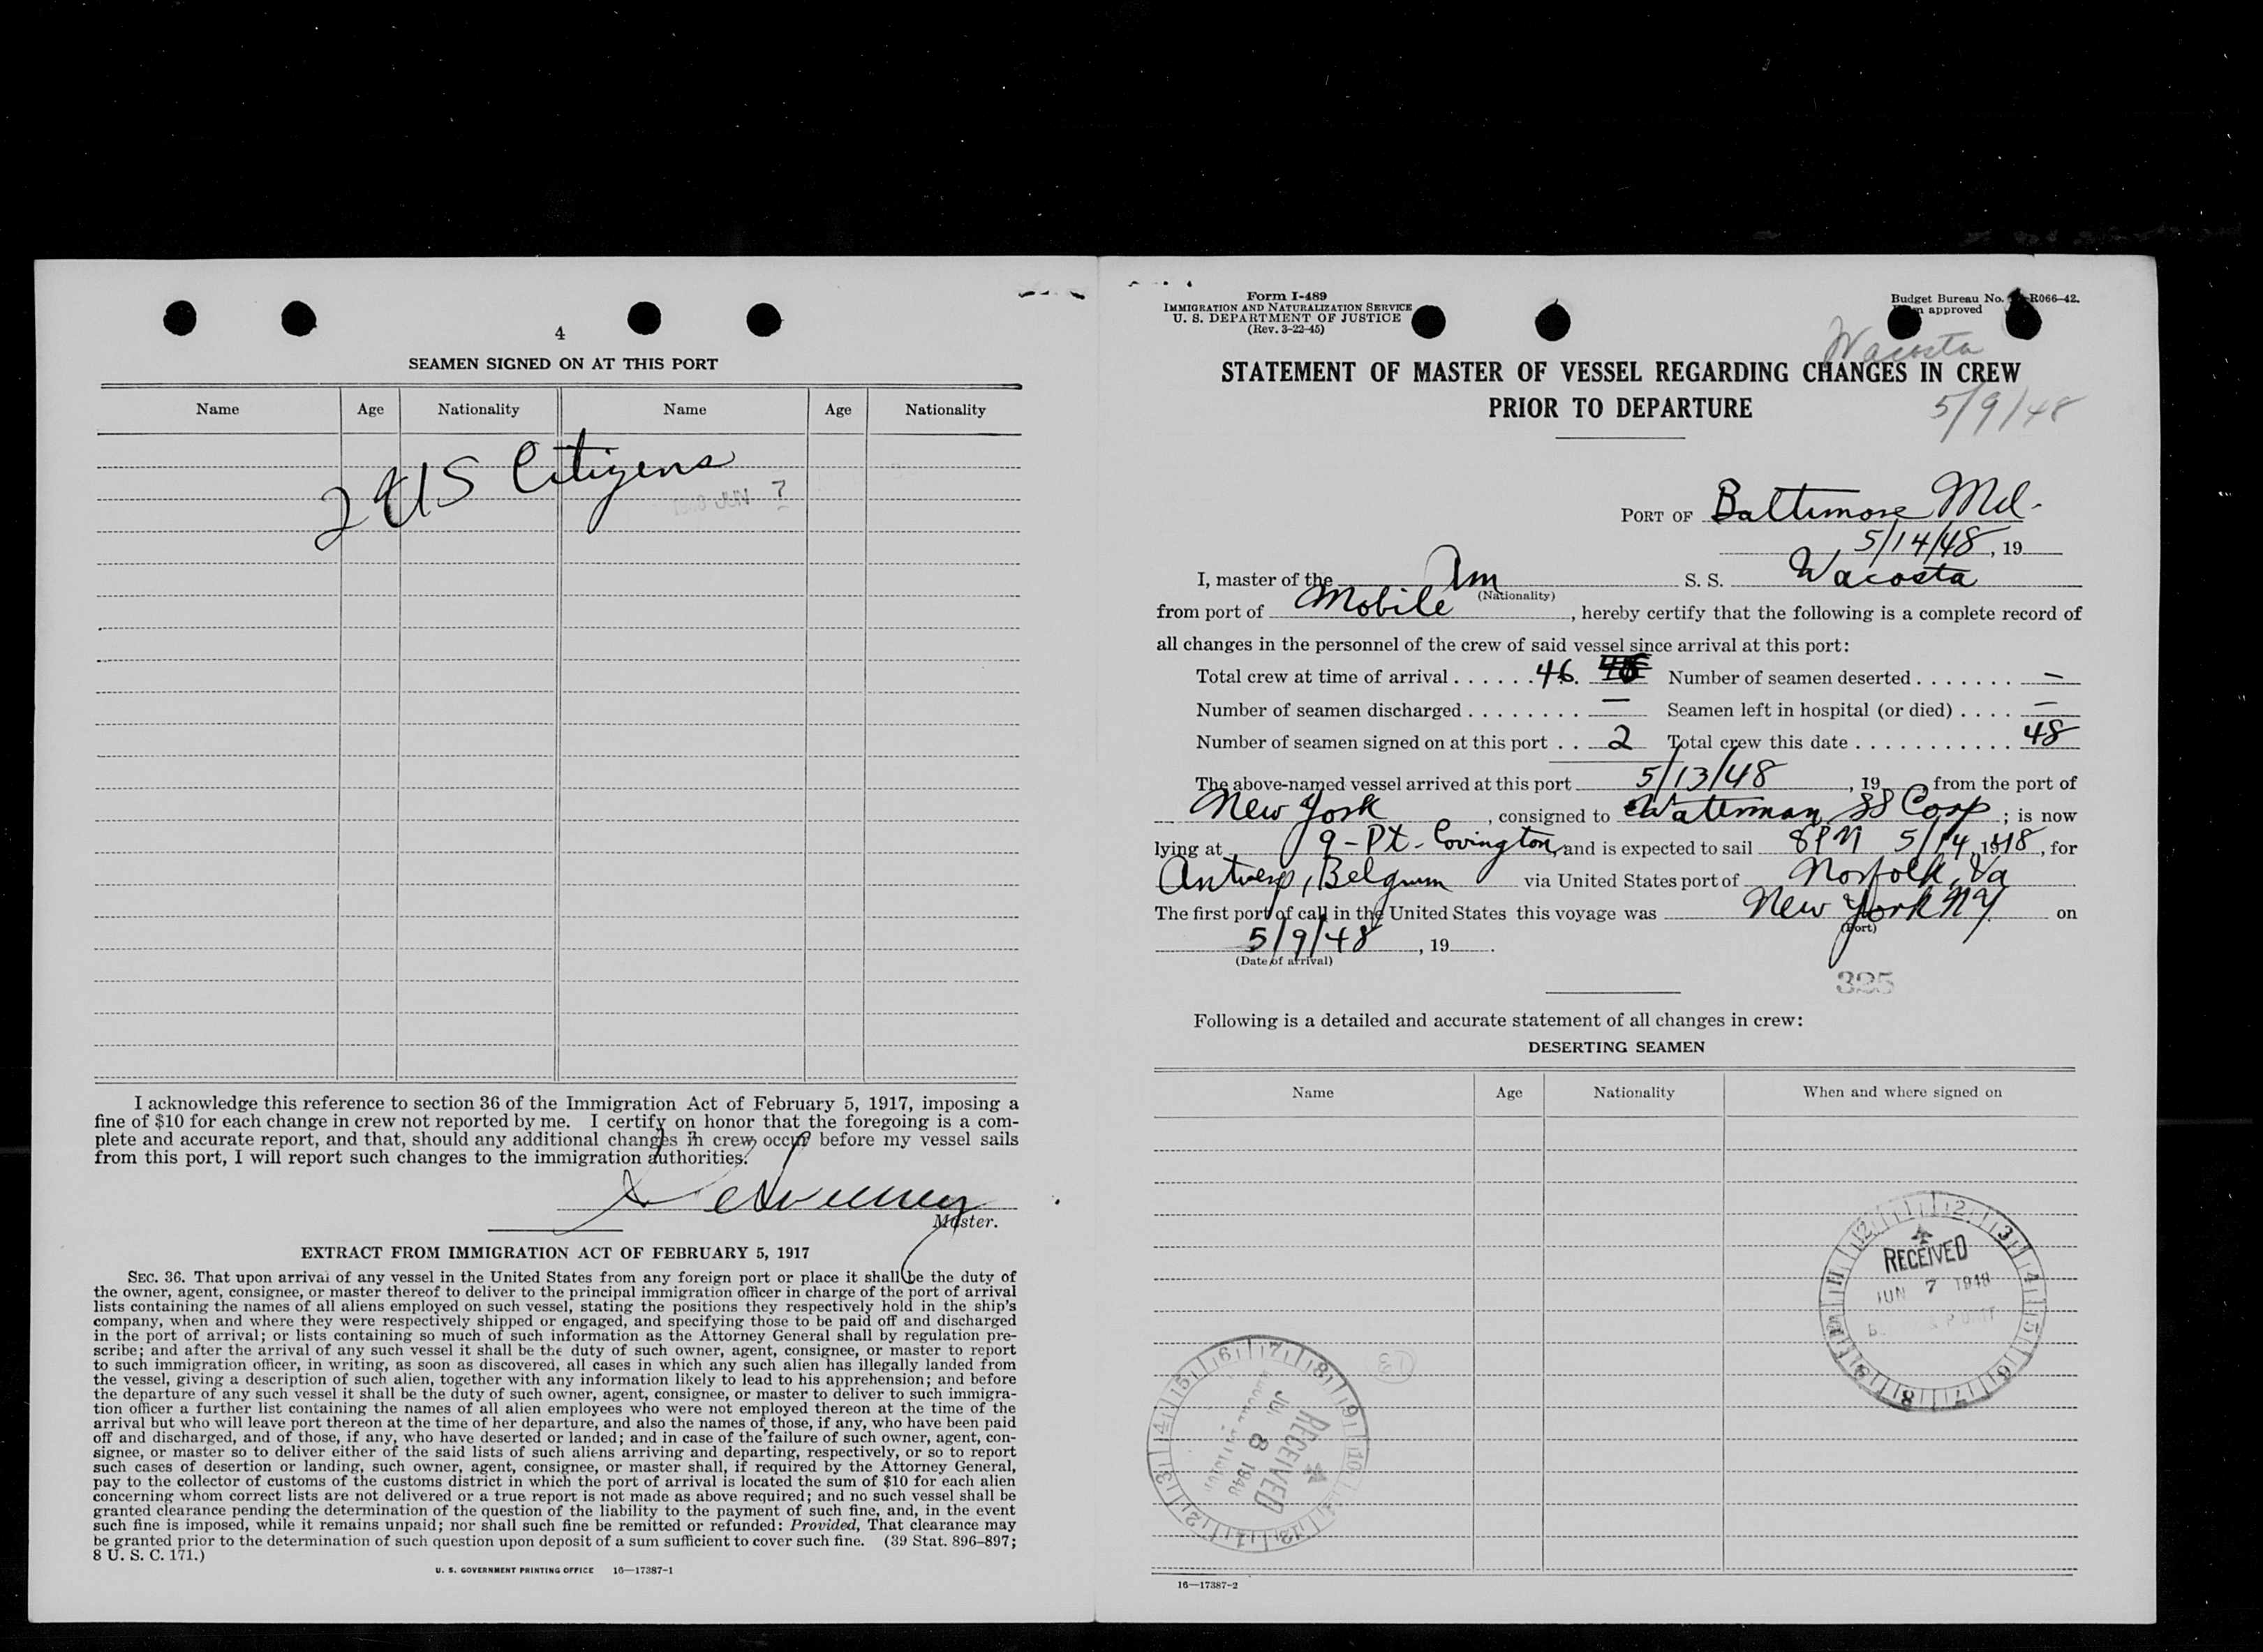 4
SEAMEN SIGNED ON AT THIS PORT
Name Age Nationality Name Age Nationality
2 US Citizens
JUN 7
I acknowledge this reference to section 36 of the Immigration Act of February 5, 1917, imposing a
fine of $10 for each change in crew not reported by me. I certify on honor that the foregoing is a com-
plete and accurate report, and that, should any additional changes in crew occur before my vessel sails
from this port, I will report such changes to the immigration authorities.
Master.
EXTRACT FROM IMMIGRATION ACT OF FEBRUARY 5, 1917
SEC. 36. That upon arrival of any vessel in the United States from any foreign port or place it shall be the duty of
the owner, agent, consignee, or master thereof to deliver to the principal immigration officer in charge of the port of arrival
lists containing the names of all aliens employed on such vessel, stating the positions they respectively hold in the ship's
company, when and where they were respectively shipped or engaged, and specifying those to be paid off and discharged
in the port of arrival; or lists containing so much of such information as the Attorney General shall by regulation pre-
scribe; and after the arrival of any such vessel it shall be the duty of such owner, agent, consignee, or master to report
to such immigration officer, in writing, as soon as discovered, all cases in which any such alien has illegally landed from
the vessel, giving a description of such alien, together with any information likely to lead to his apprehension; and before
the departure of any such vessel it shall be the duty of such owner, agent, consignee, or master to deliver to such immigra-
tion officer a further list containing the names of all alien employees who were not employed thereon at the time of the
arrival but who will leave port thereon at the time of her departure, and also the names of those, if any, who have been paid
off and discharged, and of those, if any, who have deserted or landed; and in case of the failure of such owner, agent, con-
signee, or master so to deliver either of the said lists of such aliens arriving and departing, respectively, or so to report
such cases of desertion or landing, such owner, agent, consignee, or master shall, if required by the Attorney General,
pay to the collector of customs of the customs district in which the port of arrival is located the sum of $10 for each alien
concerning whom correct lists are not delivered or a true report is not made as above required; and no such vessel shall be
granted clearance pending the determination of the question of the liability to the payment of such fine, and, in the event
such fine is imposed, while it remains unpaid; nor shall such fine be remitted or refunded: Provided, That clearance may
be granted prior to the determination of such question upon deposit of a sum sufficient to cover such fine. (39 Stat. 896–897;
8 U. S. C. 171.)
U. S. GOVERNMENT PRINTING OFFICE 16—17387-1
Form I-489
IMMIGRATION AND NATURALIZATION SERVICE
U. S. DEPARTMENT OF JUSTICE
(Rev. 3-22-45)
Budget Bureau No. R066–42.
approved
Wacosta
STATEMENT OF MASTER OF VESSEL REGARDING CHANGES IN CREW
PRIOR TO DEPARTURE
5/9/48
PORT OF Baltimore Md.
5/14/48, 19
I, master of the Am S. S. Wacosta
(Nationality)
from port of Mobile, hereby certify that the following is a complete record of
all changes in the personnel of the crew of said vessel since arrival at this port:
Total crew at time of arrival . . . . . . 46 Number of seamen deserted . . . . . . . —
Number of seamen discharged . . . . . . . . — Seamen left in hospital (or died) . . . . —
Number of seamen signed on at this port . . 2 Total crew this date . . . . . . . . . . . . 48
The above-named vessel arrived at this port 5/13/48, 19 from the port of
New York, consigned to Waterman SS Corp; is now
lying at 9-Pt-Covington, and is expected to sail 8PM 5/14, 1948, for
Antwerp, Belgium via United States port of Norfolk, Va
The first port of call in the United States this voyage was New York NY on
(Port)
5/9/48, 19
(Date of arrival)
325
Following is a detailed and accurate statement of all changes in crew:
DESERTING SEAMEN
Name Age Nationality When and where signed on
RECEIVED
JUN 7 1948
RECEIVED
8 1948
16—17387-2